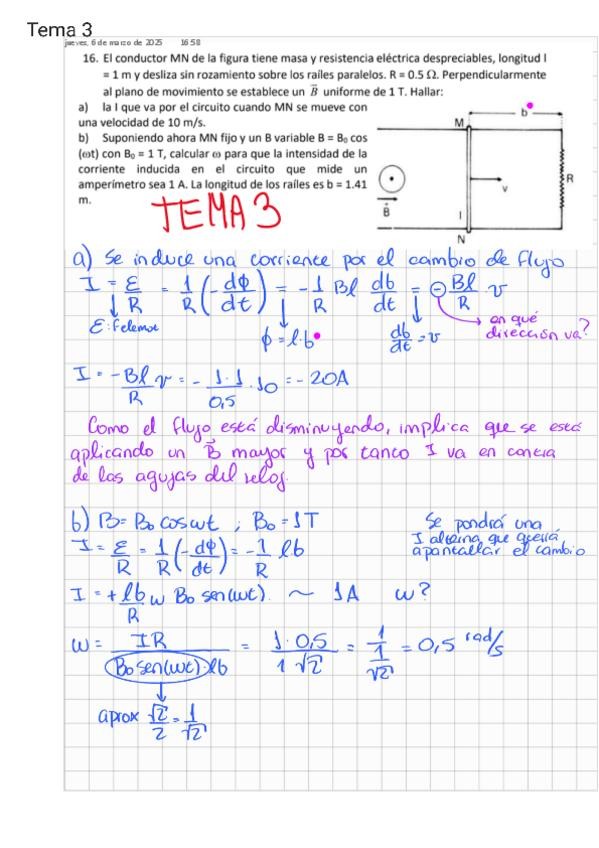 Tema 3
jueves, 6 de marzo de 2025 16:58
16. El conductor MN de la figura tiene masa y resistencia eléctrica despreciables, longitud l
= 1 m y desliza sin rozamiento sobre los raíles paralelos. R = 0.5 Ω. Perpendicularmente
al plano de movimiento se establece un B⃗ uniforme de 1 T. Hallar:
a) la I que va por el circuito cuando MN se mueve con
una velocidad de 10 m/s.
b) Suponiendo ahora MN fijo y un B variable B = B₀ cos
(ωt) con B₀ = 1 T, calcular ω para que la intensidad de la
corriente inducida en el circuito que mide un
amperímetro sea 1 A. La longitud de los raíles es b = 1.41
m.
b
M
R
v
B⃗
l
N
TEMA 3
a) Se induce una corriente por el cambio de flujo
I = ε/R = 1/R (-dϕ/dt) = -1/R Bl db/dt = - Bl/R v
ε: felemot
ϕ = l·b
db/dt = v
en qué
dirección va?
I = -Bl/R v = - 1·1/0,5 · 10 = -20A
Como el flujo está disminuyendo, implica que se está
aplicando un B⃗ mayor y por tanto I va en contra
de las agujas del reloj.
b) B = B₀ cos ωt ; B₀ = 1T
Se pondrá una
I alterna que querrá
apantallar el cambio
I = ε/R = 1/R (-dϕ/dt) = -1/R lb
I = + lb/R ω B₀ sen(ωt) ~ 1A ω?
ω = IR/B₀ sen(ωt)·lb = 1·0,5/1 √2 = 1/1/√2 = 0,5 rad/s
aprox √2/2 = 1/√2